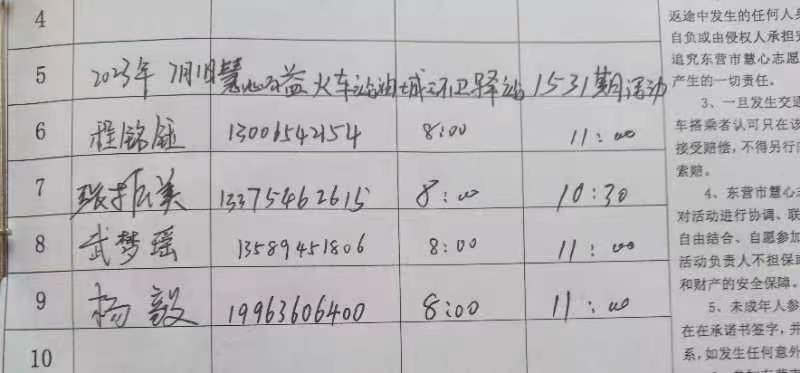 4
5 2023年 7月1日慧心公益火车站油城环卫驿站1531期活动
6 程铭钰 13006542154 8:00 11:00
7 张振美 13375462615 8:00 10:30
8 武梦瑶 13589451806 8:00 11:00
9 杨毅 19963606400 8:00 11:00
10
返途中发生的任何人
自负或由侵权人承担
追究东营市慧心志愿
产生的一切责任。
3、一旦发生交通
车搭乘者认可只在该
接受赔偿,不得另行
索赔。
4、东营市慧心志
对活动进行协调、联
自由结合、自愿参加
活动负责人不担保
和财产的安全保障。
5、未成年人参
在在承诺书签字,并
系,如发生任何意外